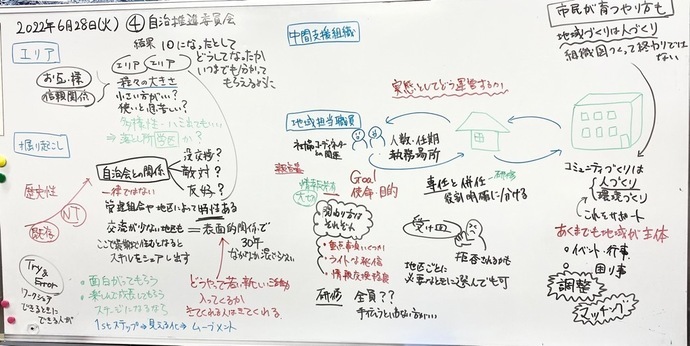 2022年6月28日(火) ④自治推進委員会
エリア
結果 10になったとして
どうしてなったか
いつまでも分かって
もらえるように
お互い様
信頼関係
エリア エリア
種々の大きさ
小さい方がいい?
使いと息苦しい?
多様性
学区か?
掘り起こし
自治会との関係
没交渉?
敵対?
友好?
一様ではない
歴史性
NT
既存
管理組合や地区によって特性ある
交流が少ない地区も = 表面的関係で
30年
スキルをシェア出す
Try &
Error
ワークショップ
できるときに
できる人が
・面白がってもらう
・楽しんで成長してもらう
ステージになるなら
どうやって若い新しい活動
入ってくるか
きてくれる人はきてくれる。
1stステップ→見える化→ムーブメント
中間支援組織
実態としてどう運営するか
地域担当職員
社協コーディネーター
との関連
人数・任期
執務場所
情報共有
大切
Goal
使命・目的
関わり方は
それぞれ
・重点事項いくつか
・ライトな発信
・情報交換程度
研修
全員??
専任と併任
役割明確に分ける
研修
受け皿
拒否されるかも
地区ごとに
必要なときに選んでも可
市民が育つやり方も
地域づくりは人づくり
組織図つくって終わりでは
ない
コミュニティづくりは
人づくり
環境づくり
これをサポート
あくまでも地域が主体
・イベント・行事
・困り事
調整
マッチング